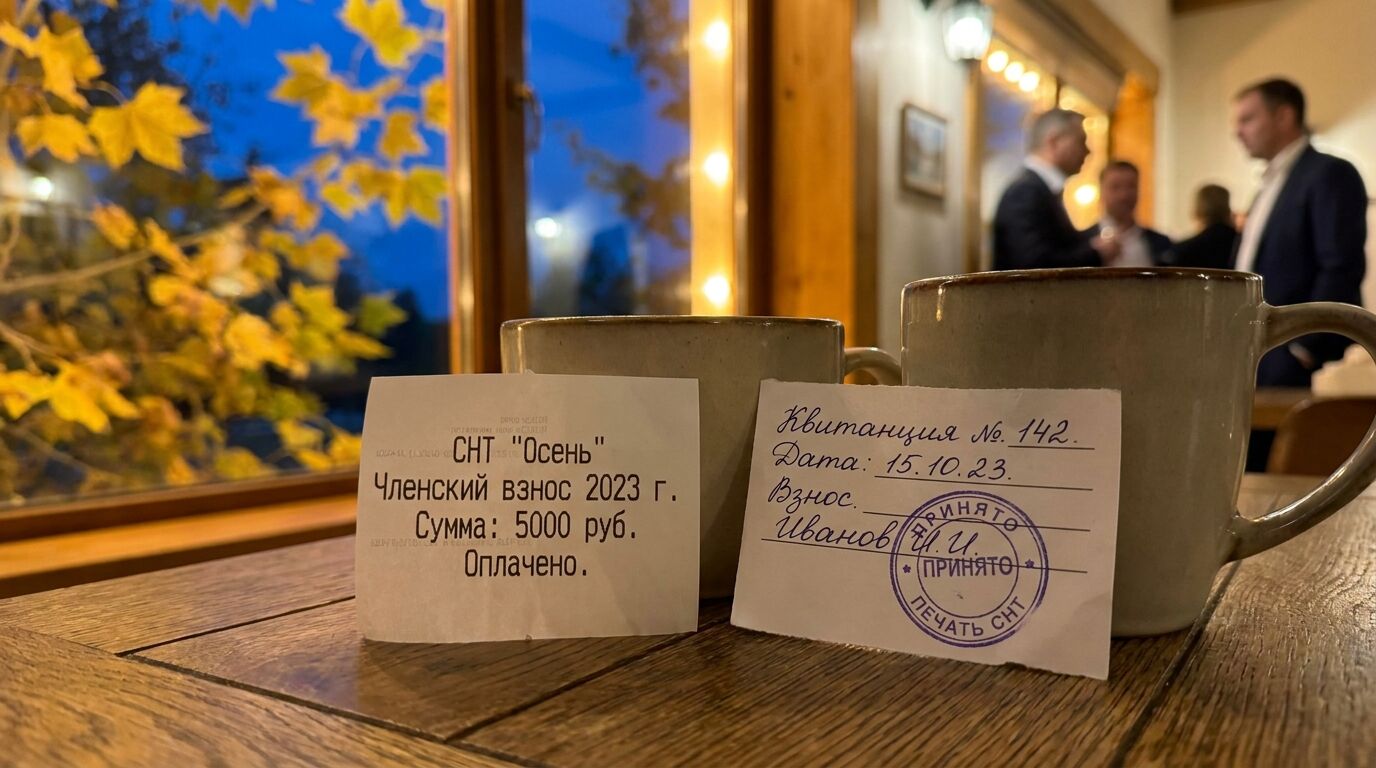 СНТ "Осень"
Членский взнос 2023 г.
Сумма: 5000 руб.
Оплачено.
Квитанция №. 142.
Дата: 15.10.23.
Взнос.
Иванов И.И.
ПРИНЯТО
ПРИНЯТО
ПЕЧАТЬ СНТ